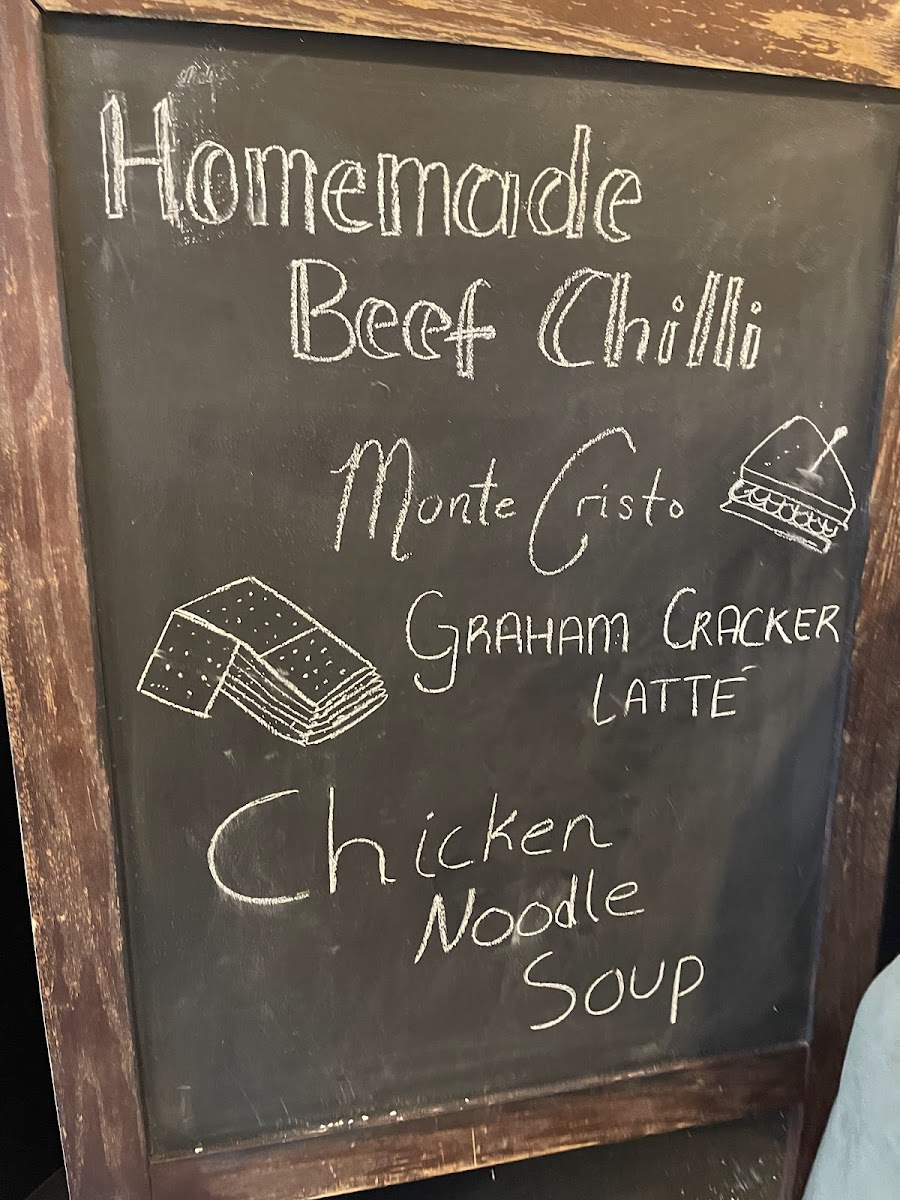 Homemade
Beef Chilli
Monte Cristo
GRAHAM CRACKER
LATTÉ
Chicken
Noodle
Soup